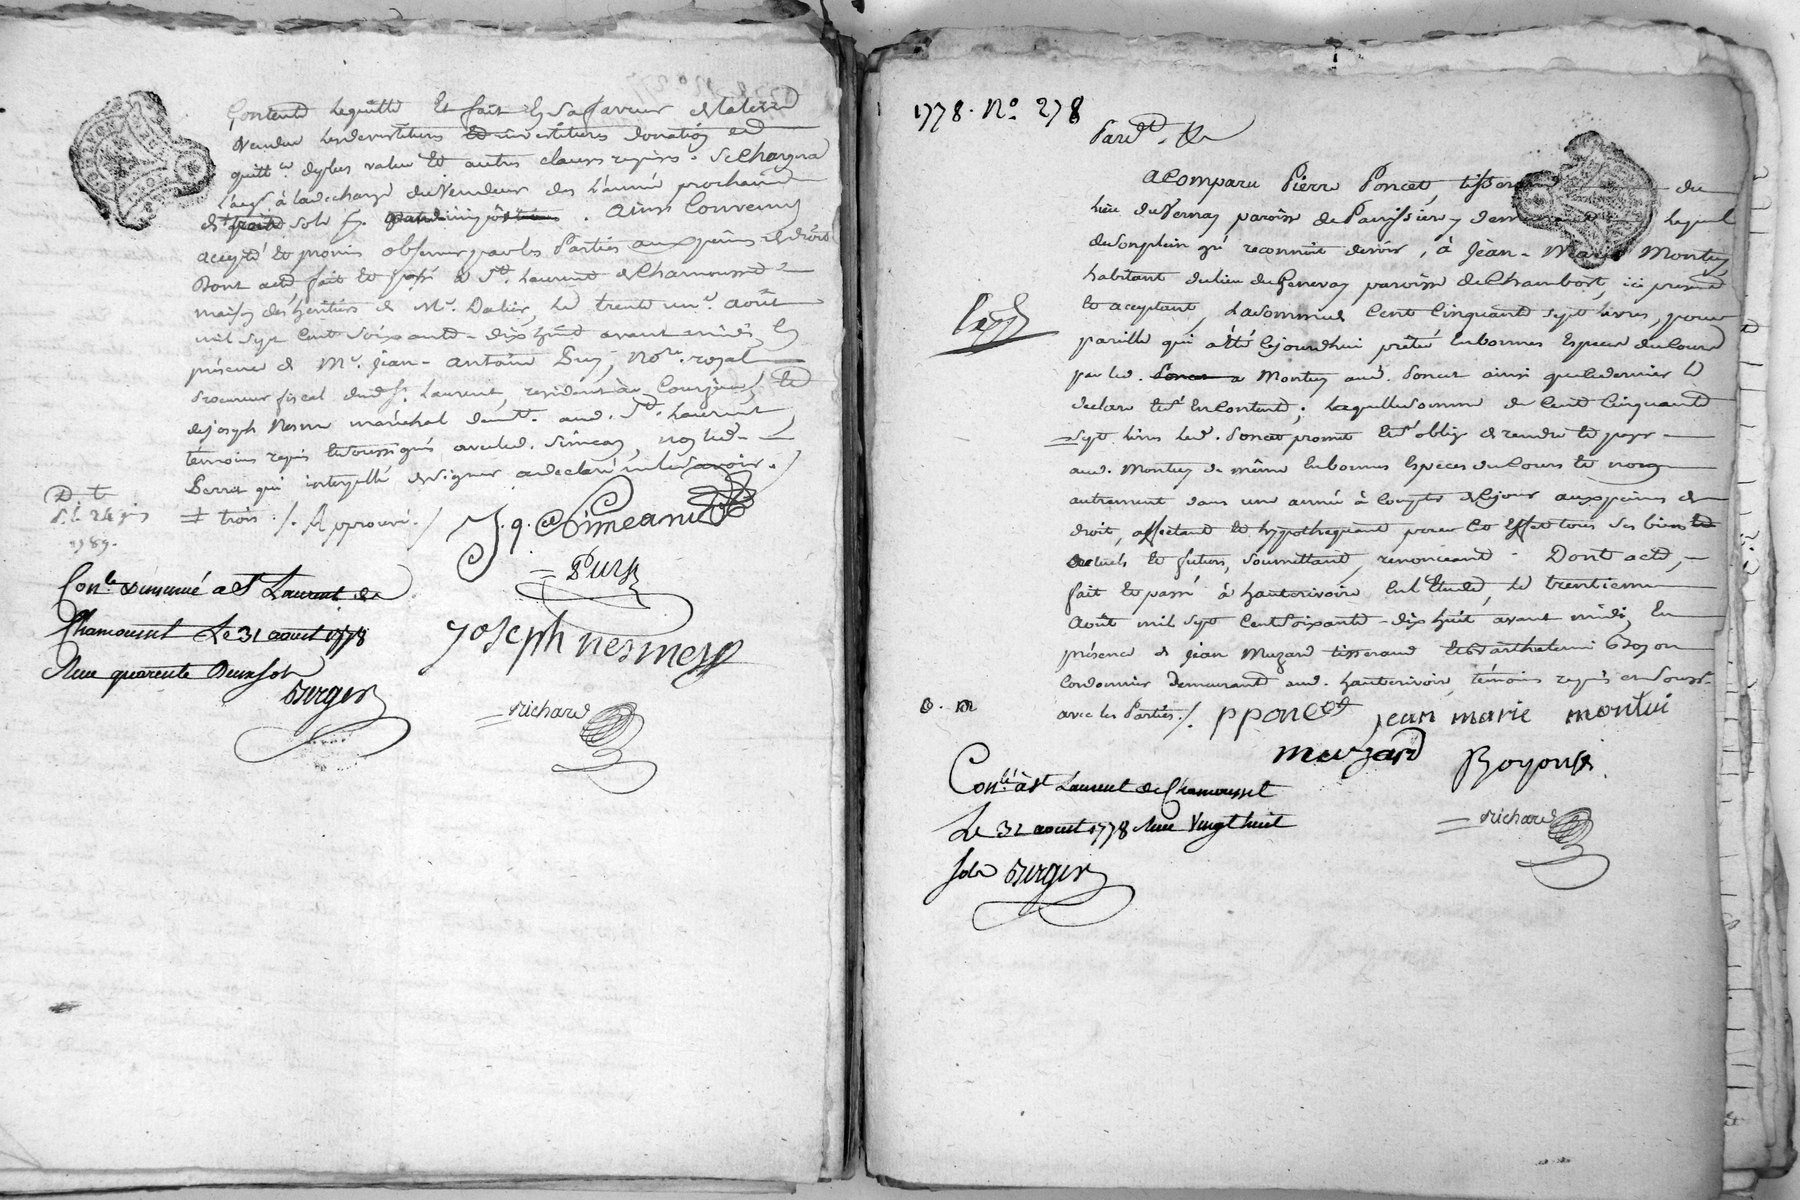 Contente le quitte et fait en sa faveur
vendu les devestitures donation et
quitt.ce de plus value et autres clauses requises. Se Chargera
à la decharge du vendeur dès l'année prochaine
sols Ainsi Convenu
accepté et promis observer par les Parties aux peines de droit
Dont acte, fait et passé à St. Laurent de Chamousset
maison des héritiers de Mr. Dalier, le trente un.e août
mil sept Cent Soixante-dix huit avant midi, En
présence de Mr. Jean-Antoine Puy, no.re royal
Procureur fiscal dud. St. Laurent, resident à Courzieu, et
de Joseph Nesme maréchal demt. aud. St. Laurent,
témoins requis et soussignés avec led. Simean, non led.
Perret qui interpellé de signer a déclaré ne le savoir ./
trois ./. Approuvé ./
J. q. Simeand
Puy
Joseph nesme
richard
D. t.
1789.
Con.lé a St Laurent de
Chamousset Le 31 aout 1778
Reçu quarente Deux sols
Berger
1778. No. 278
Pard.t &a
A Comparu Pierre Poncet, tisserand du
lieu du Vernay paroisse de Panissiere y dem lequel
de son plein gré reconnoit devoir, à Jean-Marie Montuy
habitant du lieu du Genevay paroisse de Chambost, ici present
et acceptant, La somme de Cent Cinquante sept livres, pour
pareille qui a été Cejourdhui prêtée En bonnes Espèces du Cours
par led. Montuy aud. Poncet ainsi que Ce dernier le
declare et s'En Contente; laquelle somme de Cent Cinquante
sept livres led. Poncet promet et s'oblige de rendre et payer
aud. Montuy de même En bonnes Espèces du Cours et non
autrement dans une année à Compter de Ce jour aux peines de
droit, affectant et hypothequant pour Cet Effet tous ses biens
actuels et futurs, soumettant, renonceant. Dont acte,
fait et passé à hauterivoire En l'Etude, le trentieme
Août mil sept Cent Soixante-dix huit avant midi, En
présence de Jean Muzard tisserand et Barthelemi Boyon
Cordonnier demeurants aud. hauterivoire, témoins requis et souss.
avec les Parties ./. pponcet jean marie montui
muzard Boyon
Con.lé à St Laurent de Chamousset
Le 31 aout 1778 Reçu Vingt huit
sols Berger
richard